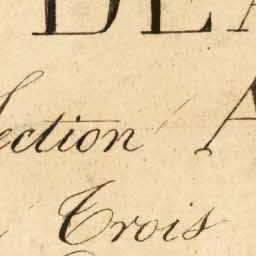 DEA
Section A
Trois